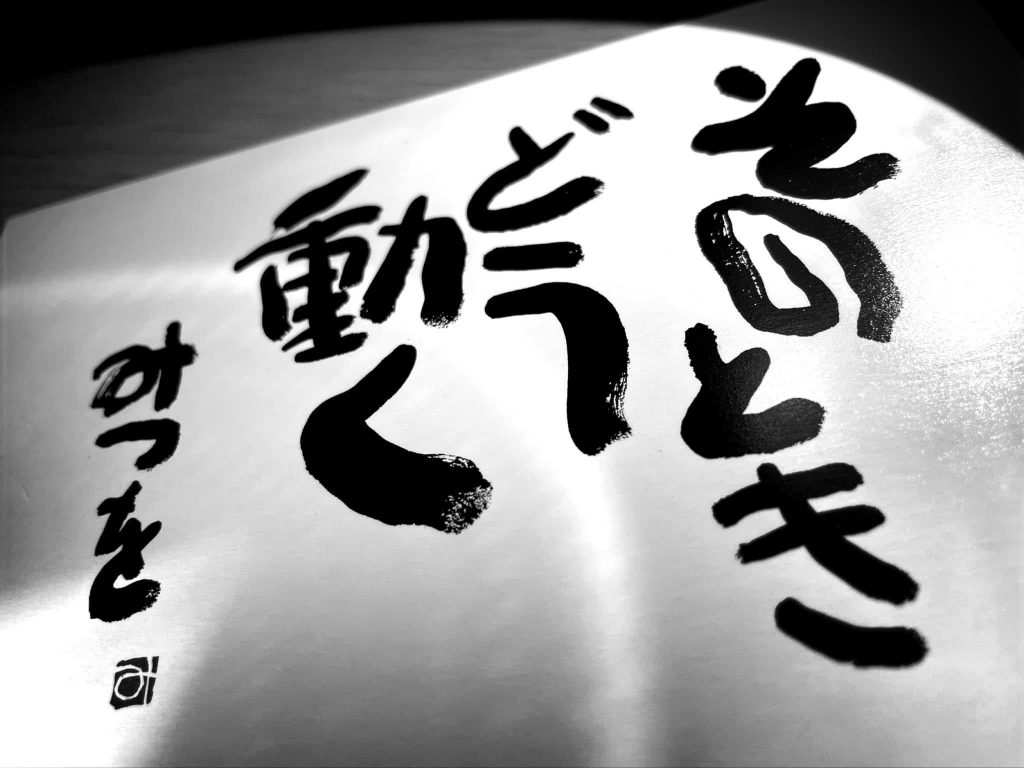 そのとき
どう
動く
みつを
み